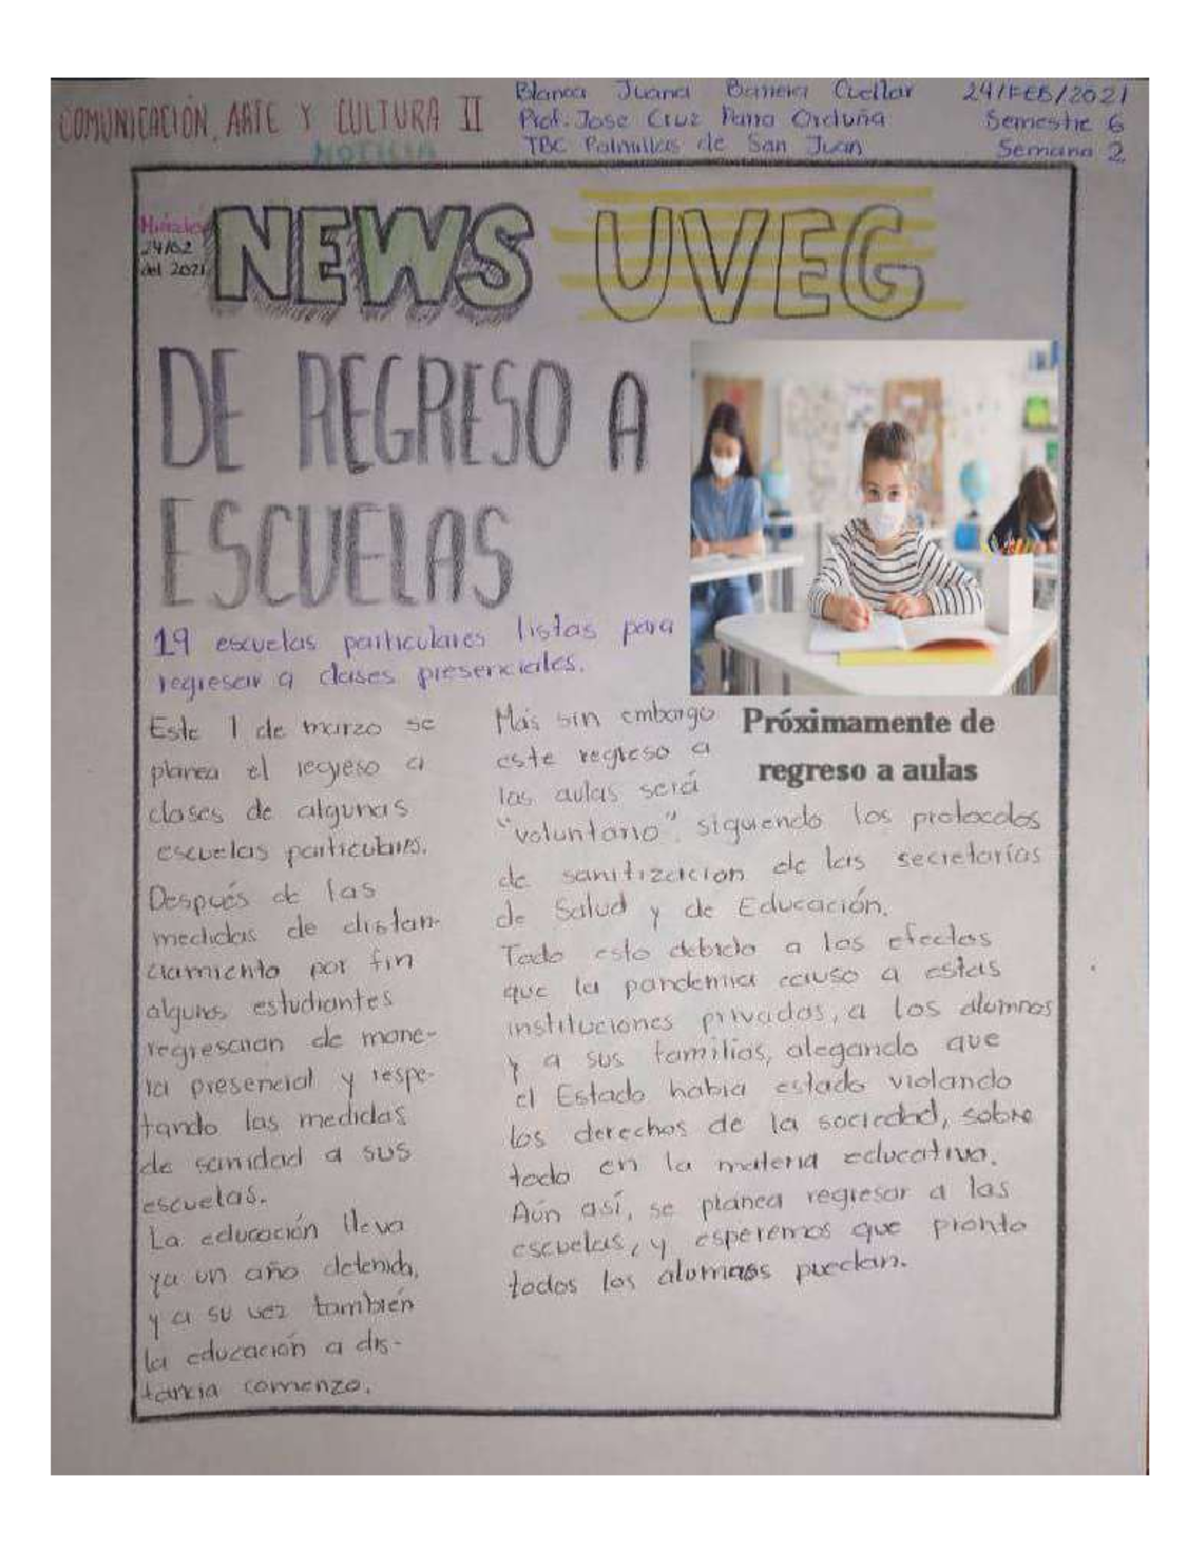 COMUNICACIÓN, ARTE Y CULTURA II
NOTICIA
Blanca Juana Barrera Cuellar
Prof. Jose Cruz Parra Orduña
TBC Palmillas de San Juan
24/FEB/2021
Semestre 6
Semana 2
Miércoles
24/02
del 2021
NEWS UVEG
DE REGRESO A
ESCUELAS
19 escuelas particulares listas para
regresar a clases presenciales.
Este 1 de marzo se
planea el regreso a
clases de algunas
escuelas particulares.
Después de las
medidas de distan-
ciamiento por fin
algunos estudiantes
regresaran de mane-
ra presencial y respe-
tando las medidas
de sanidad a sus
escuelas.
La educación lleva
ya un año detenida,
y a su vez también
la educación a dis-
tancia comenzo.
Más sin embargo
este regreso a
las aulas será
"voluntario". siguiendo los protocolos
de sanitización de las secretarías
de Salud y de Educación.
Todo esto debido a los efectos
que la pandemia causo a estas
instituciones privadas, a los alumnos
y a sus familias, alegando que
el Estado habia estado violando
los derechos de la sociedad, sobre
todo en la materia educativa.
Aún así, se planea regresar a las
escuelas, y esperemos que pronto
todos los alumnos puedan.
Próximamente de
regreso a aulas